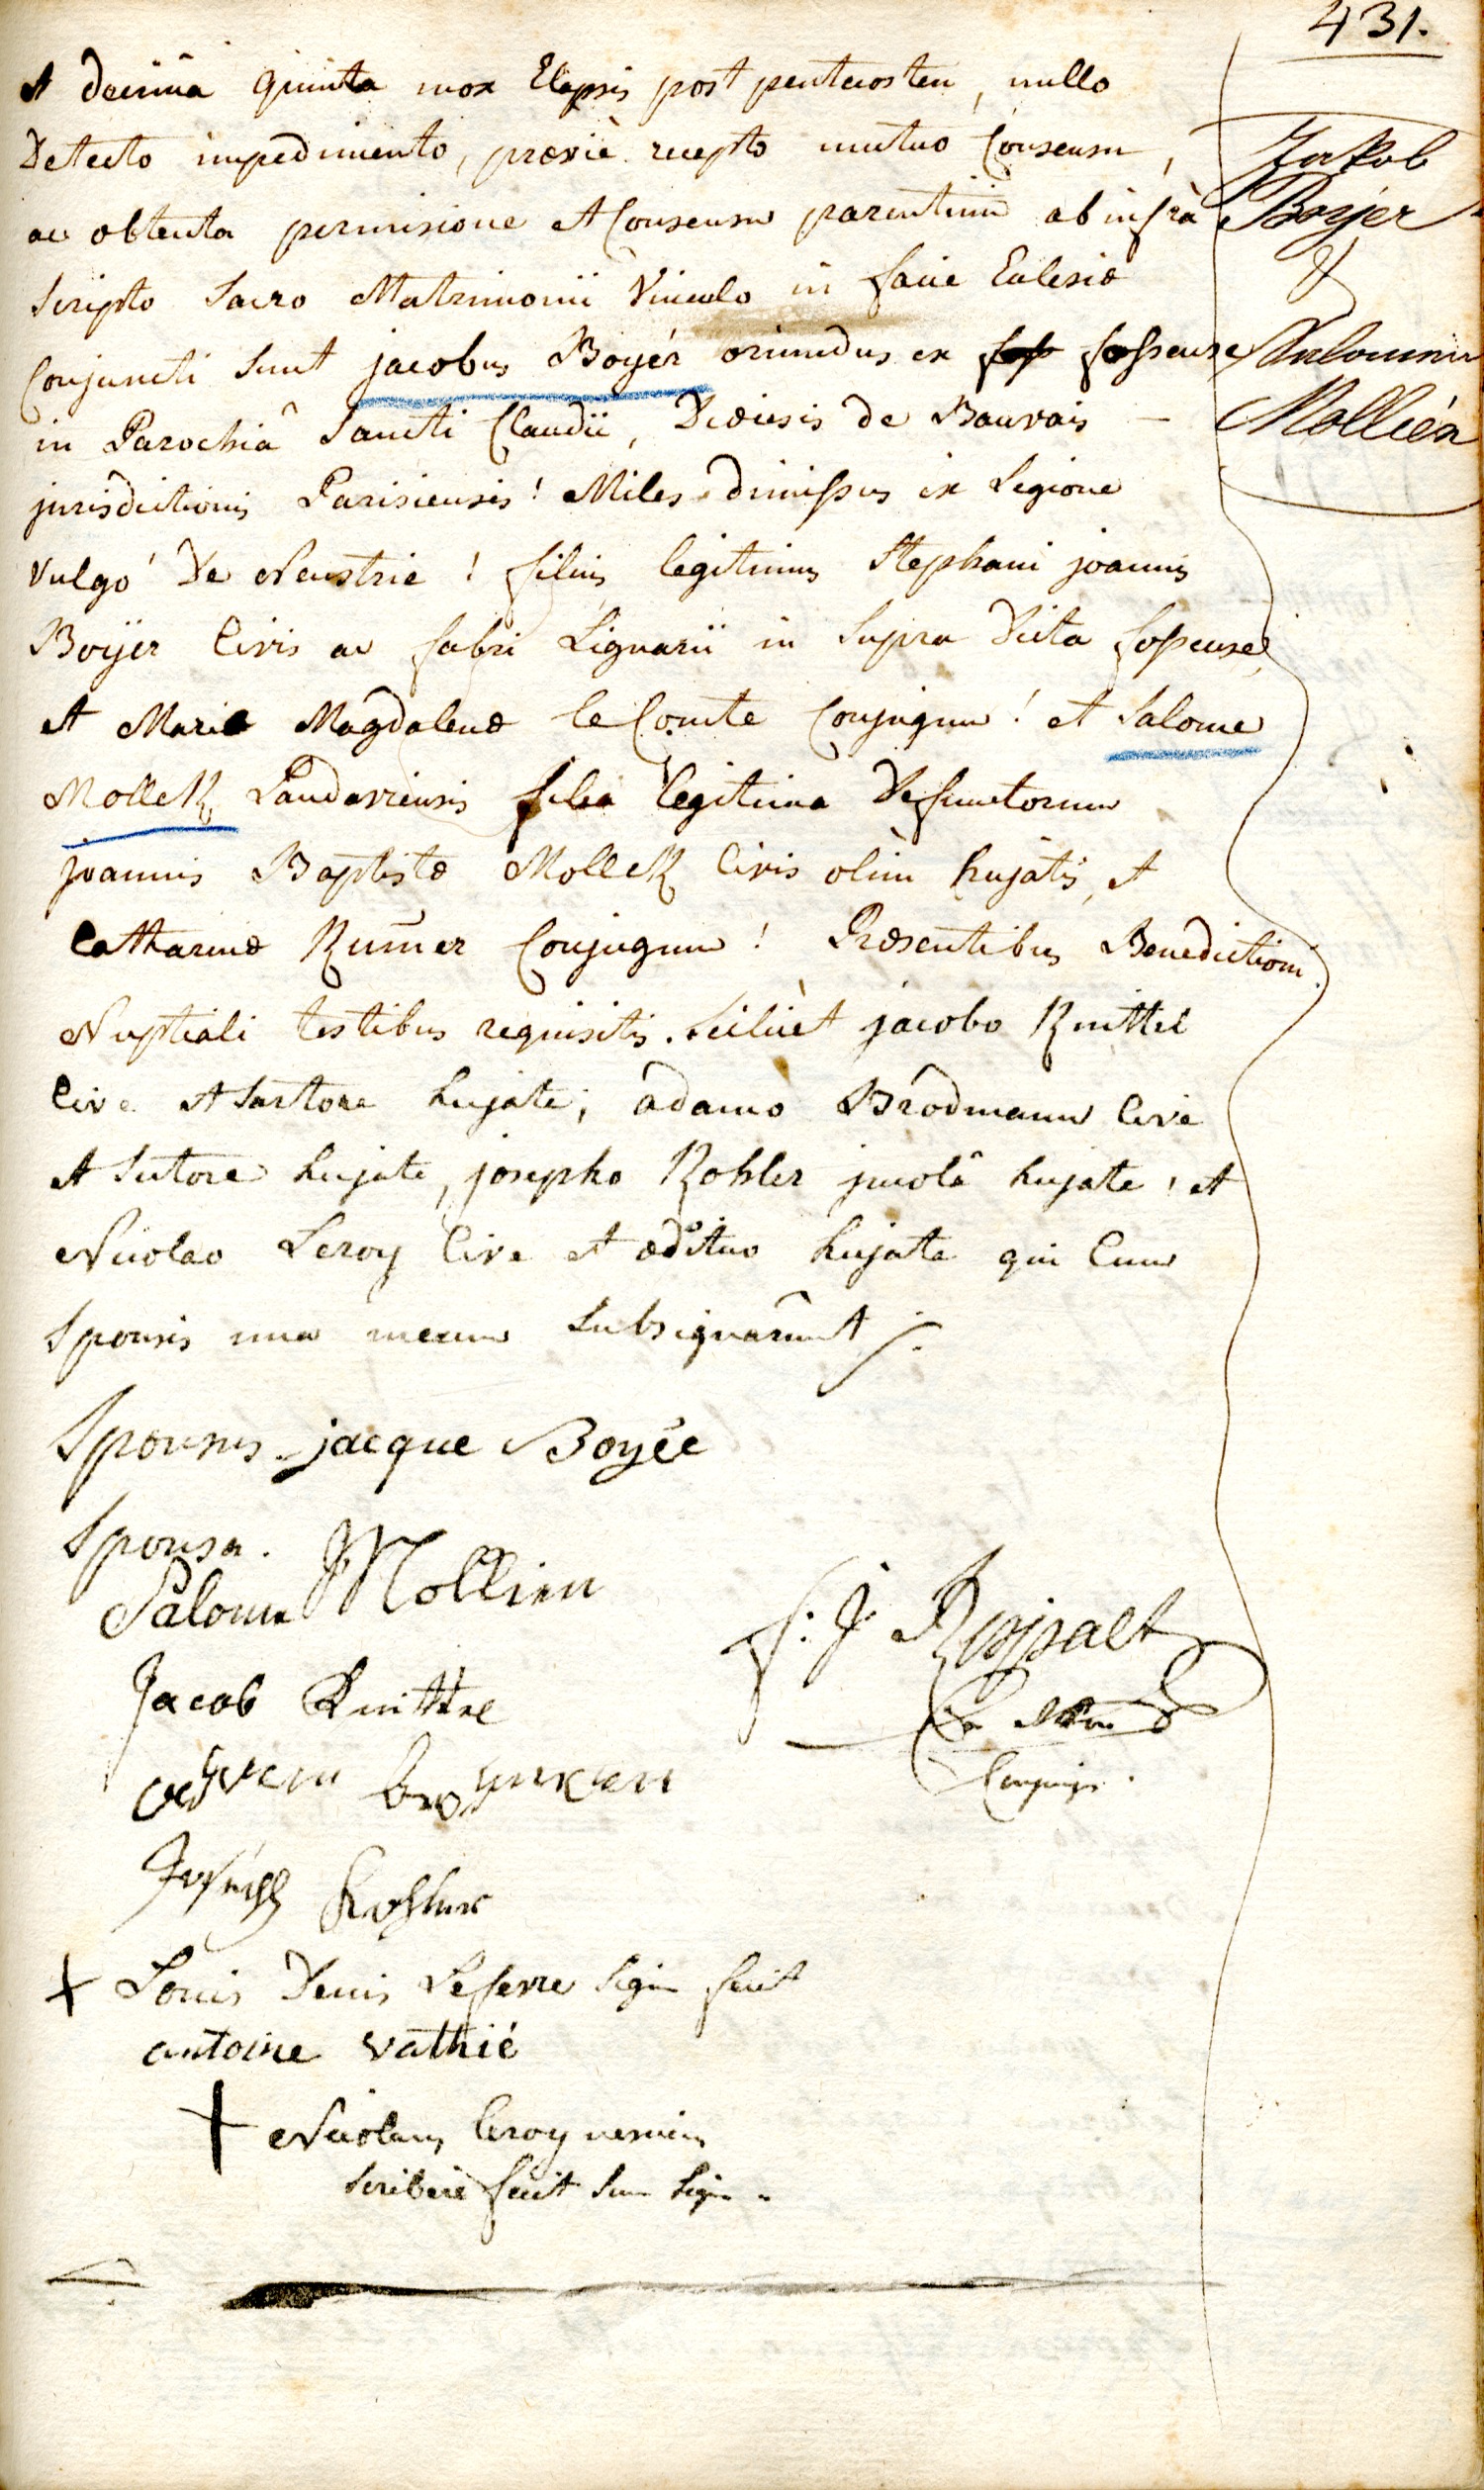 431.
et decimâ quinta mox Elapsis post pentecosten, nullo
Detecto impedimento, præviè recepto mutuo Consensu,
ac obtenta permisione et Consensu parentum ab infrà
scripto Sacro Matrimonii Vinculo in facie Eclesiæ
Conjuncti sunt jacobus Boyér oriundus ex fosseuse
in Parochiâ Sancti Claudii, Dioiesis de Bauvais –
jurisdictionis Parisiensis! Miles dimissus ex Legione
Vulgo De Neustrie! filius legitimus Stephani joannis
Boyer Civis ac fabri Lignarii in supra Dicta fosseuse
et Mariæ Magdalenæ le Comte Conjugum! et Salome
Molleck Landaviensis filia legitima Defunctorum
joannis Baptistæ Molleck Civis olim hujatis, et
Catharinæ Kum̄er Conjugum! Præsentibus Benedictioni
Nuptiali testibus requisitis. Scilicèt jacobo Knittel
Cive et Sartore hujate, adamo Brodmann Cive
et Sutore hujate, josepho Kohler jncolâ hujate! et
Nicolao Leroy Cive et ædituo hujate qui Cum
Sponsis una mecum Subsignârunt
Jakob
Boyer
&
Mollién
Sponsus. jacque Boyée
Sponsa.
Salome Mollien
Jacob Knittel
Joseph Kohler
+ Louis Denis Lefevre sign fecit
antoine vathié
+ Nicolaus leroy nescius
scribere fecit suu sign
F: J.